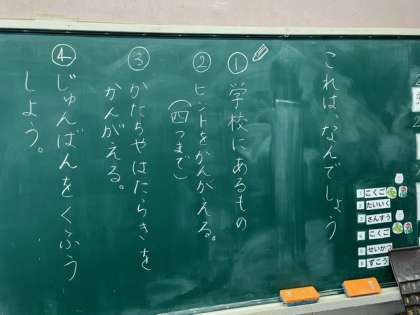 これは、なんでしょう
①学校にあるもの
②ヒントをかんがえる。
(四つまで)
③かたちやはたらきを
かんがえる。
④じゅんばんをくふう
しよう。
1 こくご
2 たいいく
3 さんすう
4 こくご
5 せいかつ
6 ずこう